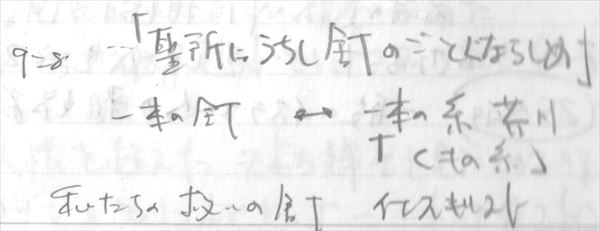 9=8. …「聖所にうちし釘のごとくならしめ」
一本の釘 ↔ 一本の糸 芥川
「くもの糸」
私たちの救いの釘 イエスキリスト